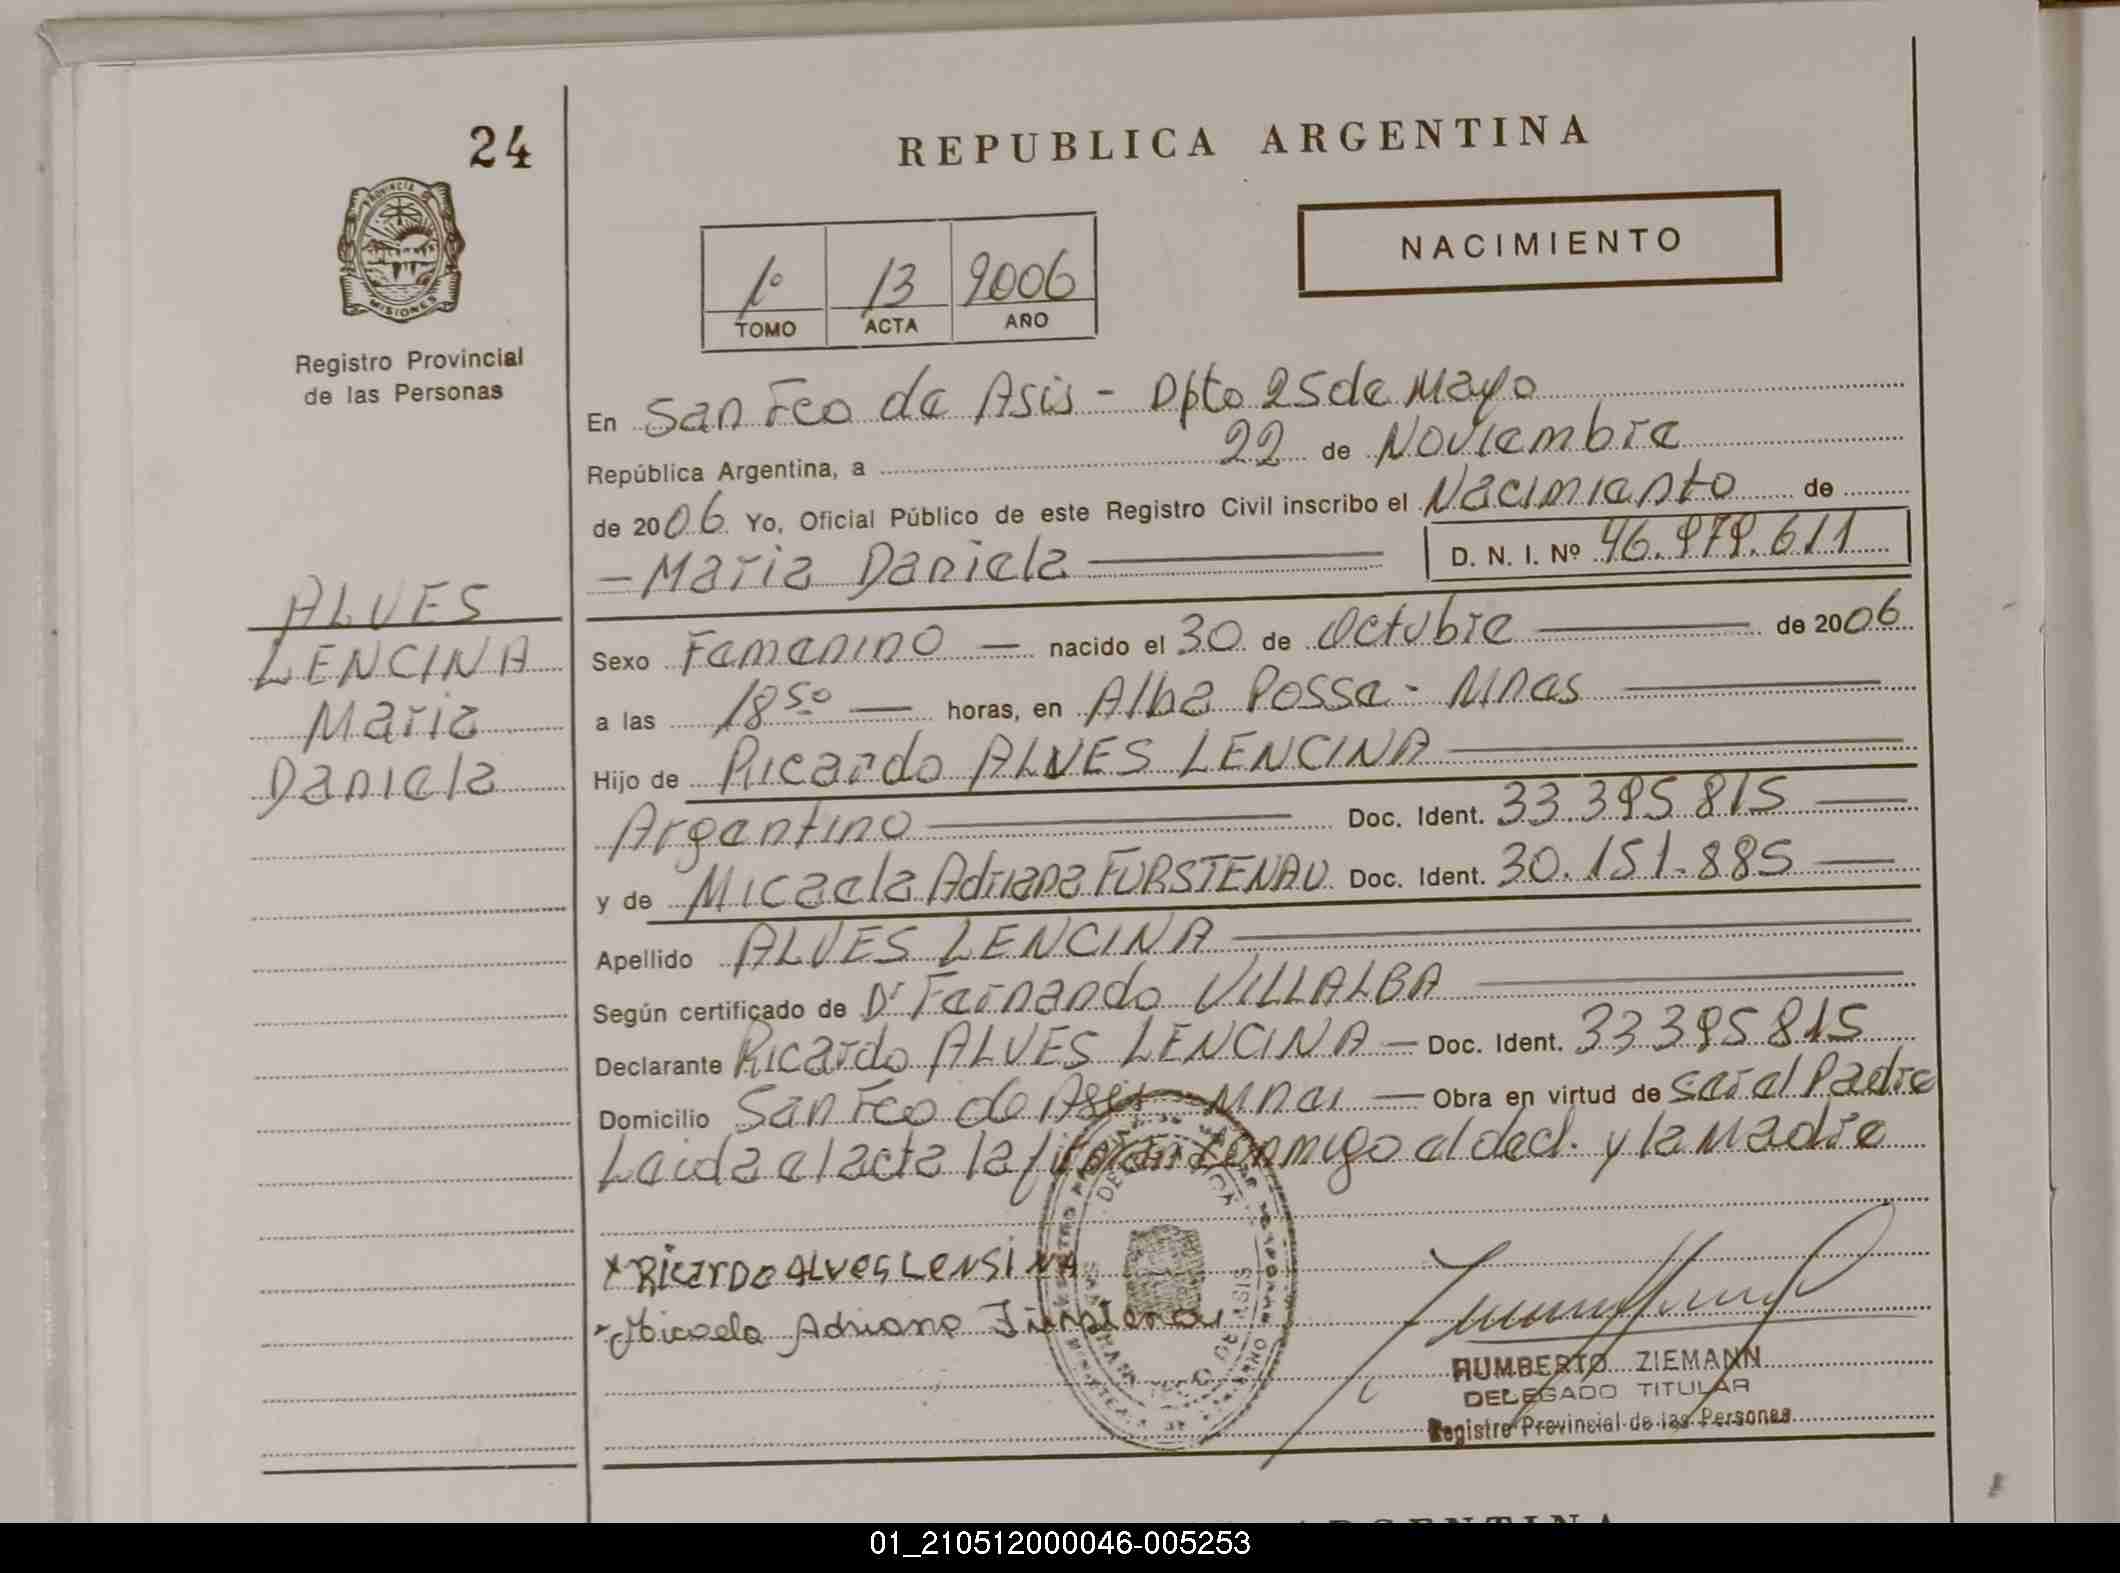 24
REPUBLICA ARGENTINA
PROVINCIA DE
MISIONES
Registro Provincial
de las Personas
NACIMIENTO
1º 13 2006
TOMO ACTA AÑO
En San Fco de Asis - Dpto 25 de Mayo
República Argentina, a 22 de Noviembre
de 2006 Yo, Oficial Público de este Registro Civil inscribo el Nacimiento de
— Maria Daniela — D. N. I. Nº 46.979.611
ALVES
LENCINA
Maria
Daniela
Sexo Femenino — nacido el 30 de Octubre — de 2006
a las 18 50 — horas, en Alba Posse - Mnes —
Hijo de Ricardo ALVES LENCINA —
Argentino — Doc. Ident. 33.395.815 —
y de Micaela Adriana FURSTENAU Doc. Ident. 30.151.885 —
Apellido ALVES LENCINA —
Según certificado de Dr Fernando VILLALBA —
Declarante Ricardo ALVES LENCINA — Doc. Ident. 33.395.815
Domicilio San Fco de Asis - Mnes — Obra en virtud de ser el Padre
Leida el acta la firman conmigo el decl. y la Madre
x Ricardo ALVES LENSINA
- Micaela Adriana Fürstenau
HUMBERTO ZIEMANN
DELEGADO TITULAR
Registro Provincial de las Personas
ARGENTINA
01_210512000046-005253